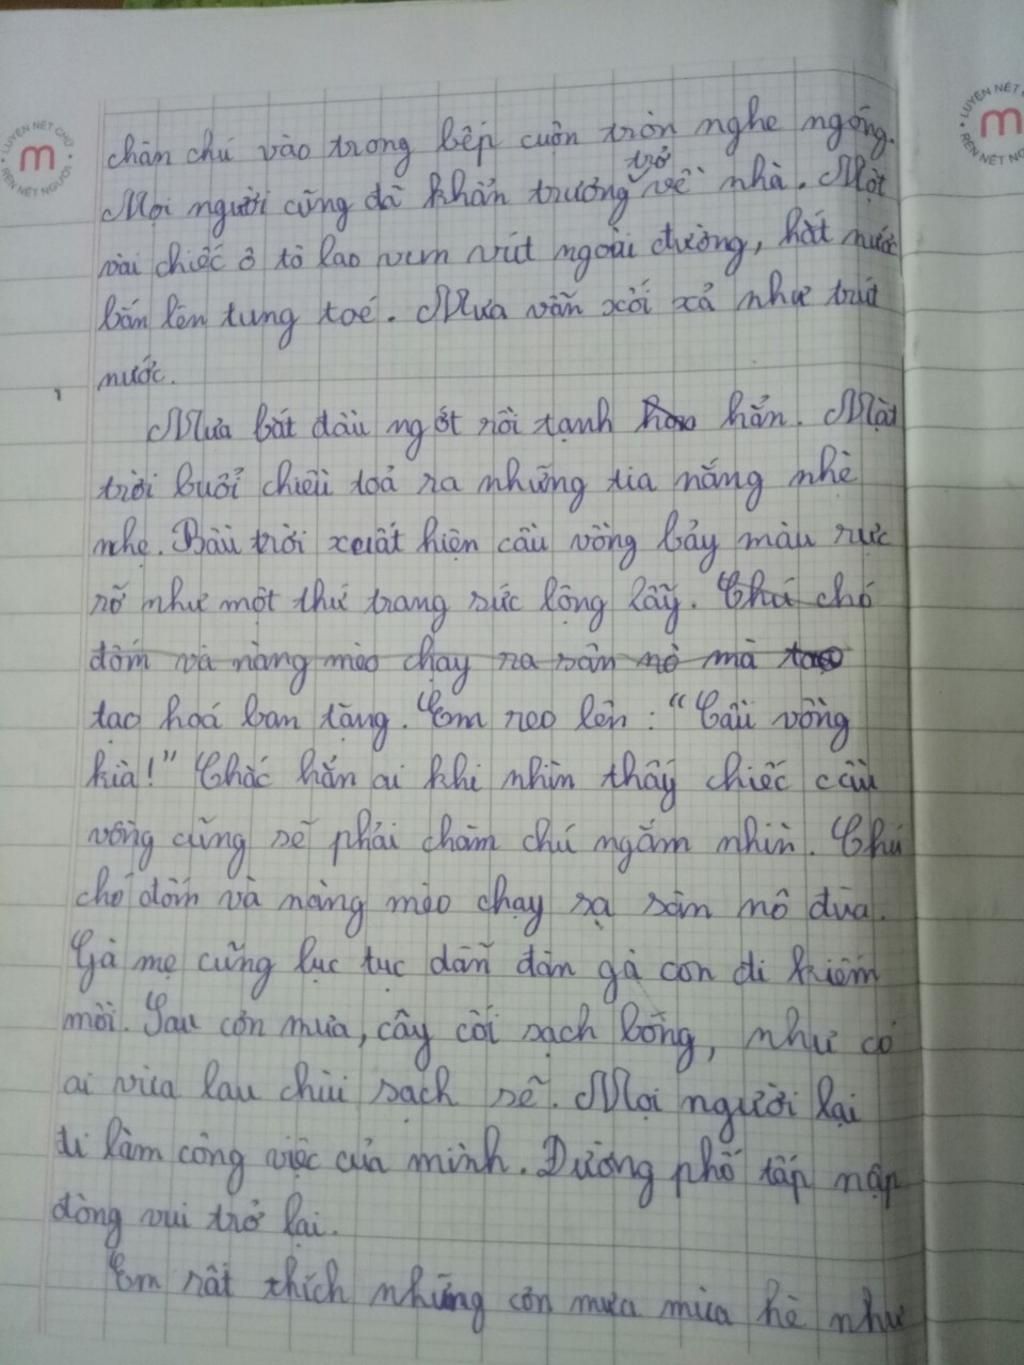 LUYỆN NẾT CHỮ
m
RÈN NẾT NGƯỜI
LUYỆN NẾT CH
m
RÈN NẾT NG
chăm chú vào trong bếp cuộn tròn nghe ngóng.
trở
Mọi người cũng đã khẩn trương về nhà. Một
vài chiếc ô tô lao vun vút ngoài đường, hất nước
bắn lên tung toé. Mưa vẫn xối xả như trút
nước.
Mưa bắt đầu ngớt rồi tạnh hẳn. Mặt
trời buổi chiều toả ra những tia nắng nhè
nhẹ. Bầu trời xuất hiện cầu vồng bảy màu rực
rỡ như một thứ trang sức lộng lẫy. Chú chó
đốm và nàng mèo chạy ra sân mà
tạo hoá ban tặng. Em reo lên: "Cầu vồng
kìa!" Chắc hẳn ai khi nhìn thấy chiếc cầu
vồng cũng sẽ phải chăm chú ngắm nhìn. Chú
chó đốm và nàng mèo chạy ra sân nô đùa.
Gà mẹ cũng lục tục dẫn đàn gà con đi kiếm
mồi. Sau cơn mưa, cây cối sạch bóng, như có
ai vừa lau chùi sạch sẽ. Mọi người lại
đi làm công việc của mình. Đường phố tấp nập
đông vui trở lại.
Em rất thích những cơn mưa mùa hè như